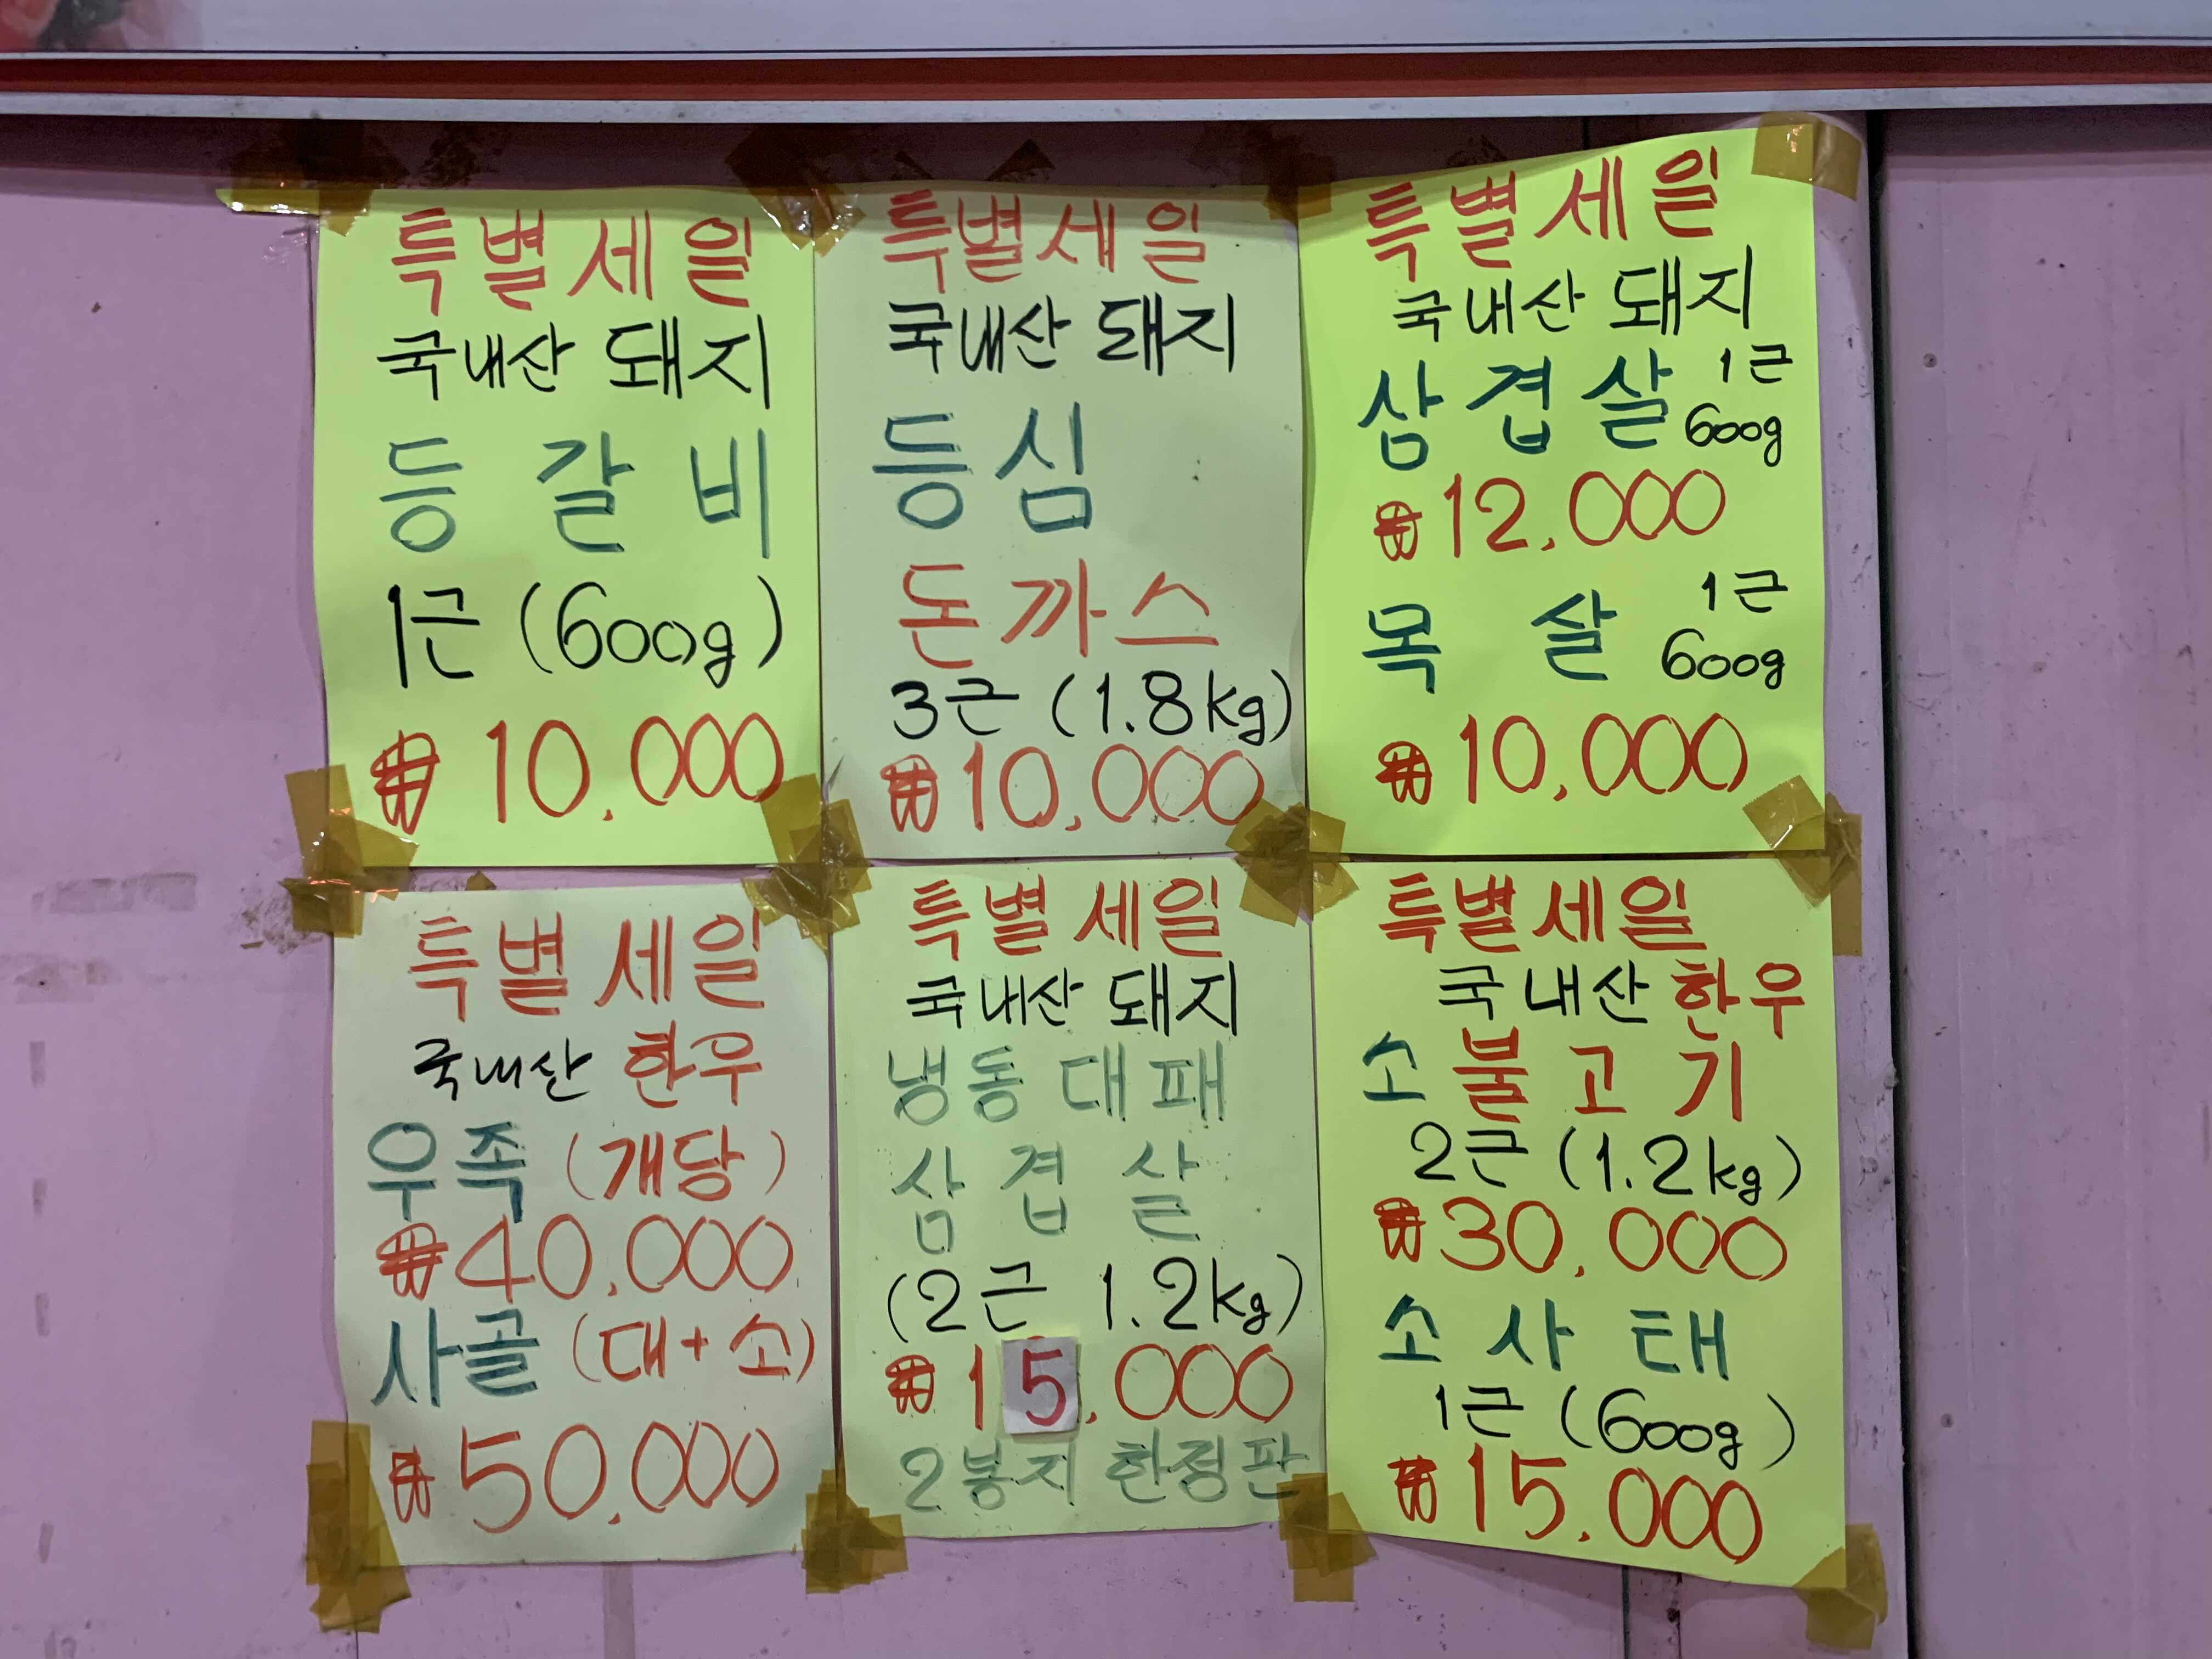 특별세일
국내산 돼지
등갈비
1근 (600g)
₩ 10.000
특별세일
국내산 돼지
등심
돈까스
3근 (1.8kg)
₩ 10,000
특별세일
국내산 돼지
삼겹살 1근 600g
₩ 12.000
목살 1근 600g
₩ 10,000
특별세일
국내산 한우
우족 (개당)
₩ 40.000
사골 (대+소)
₩ 50.000
특별세일
국내산 돼지
냉동대패
삼겹살
(2근 1.2kg)
₩ 15.000
2봉지 한정판
특별세일
국내산 한우
소불고기
2근 (1.2kg)
₩ 30.000
소사태
1근 (600g)
₩ 15.000